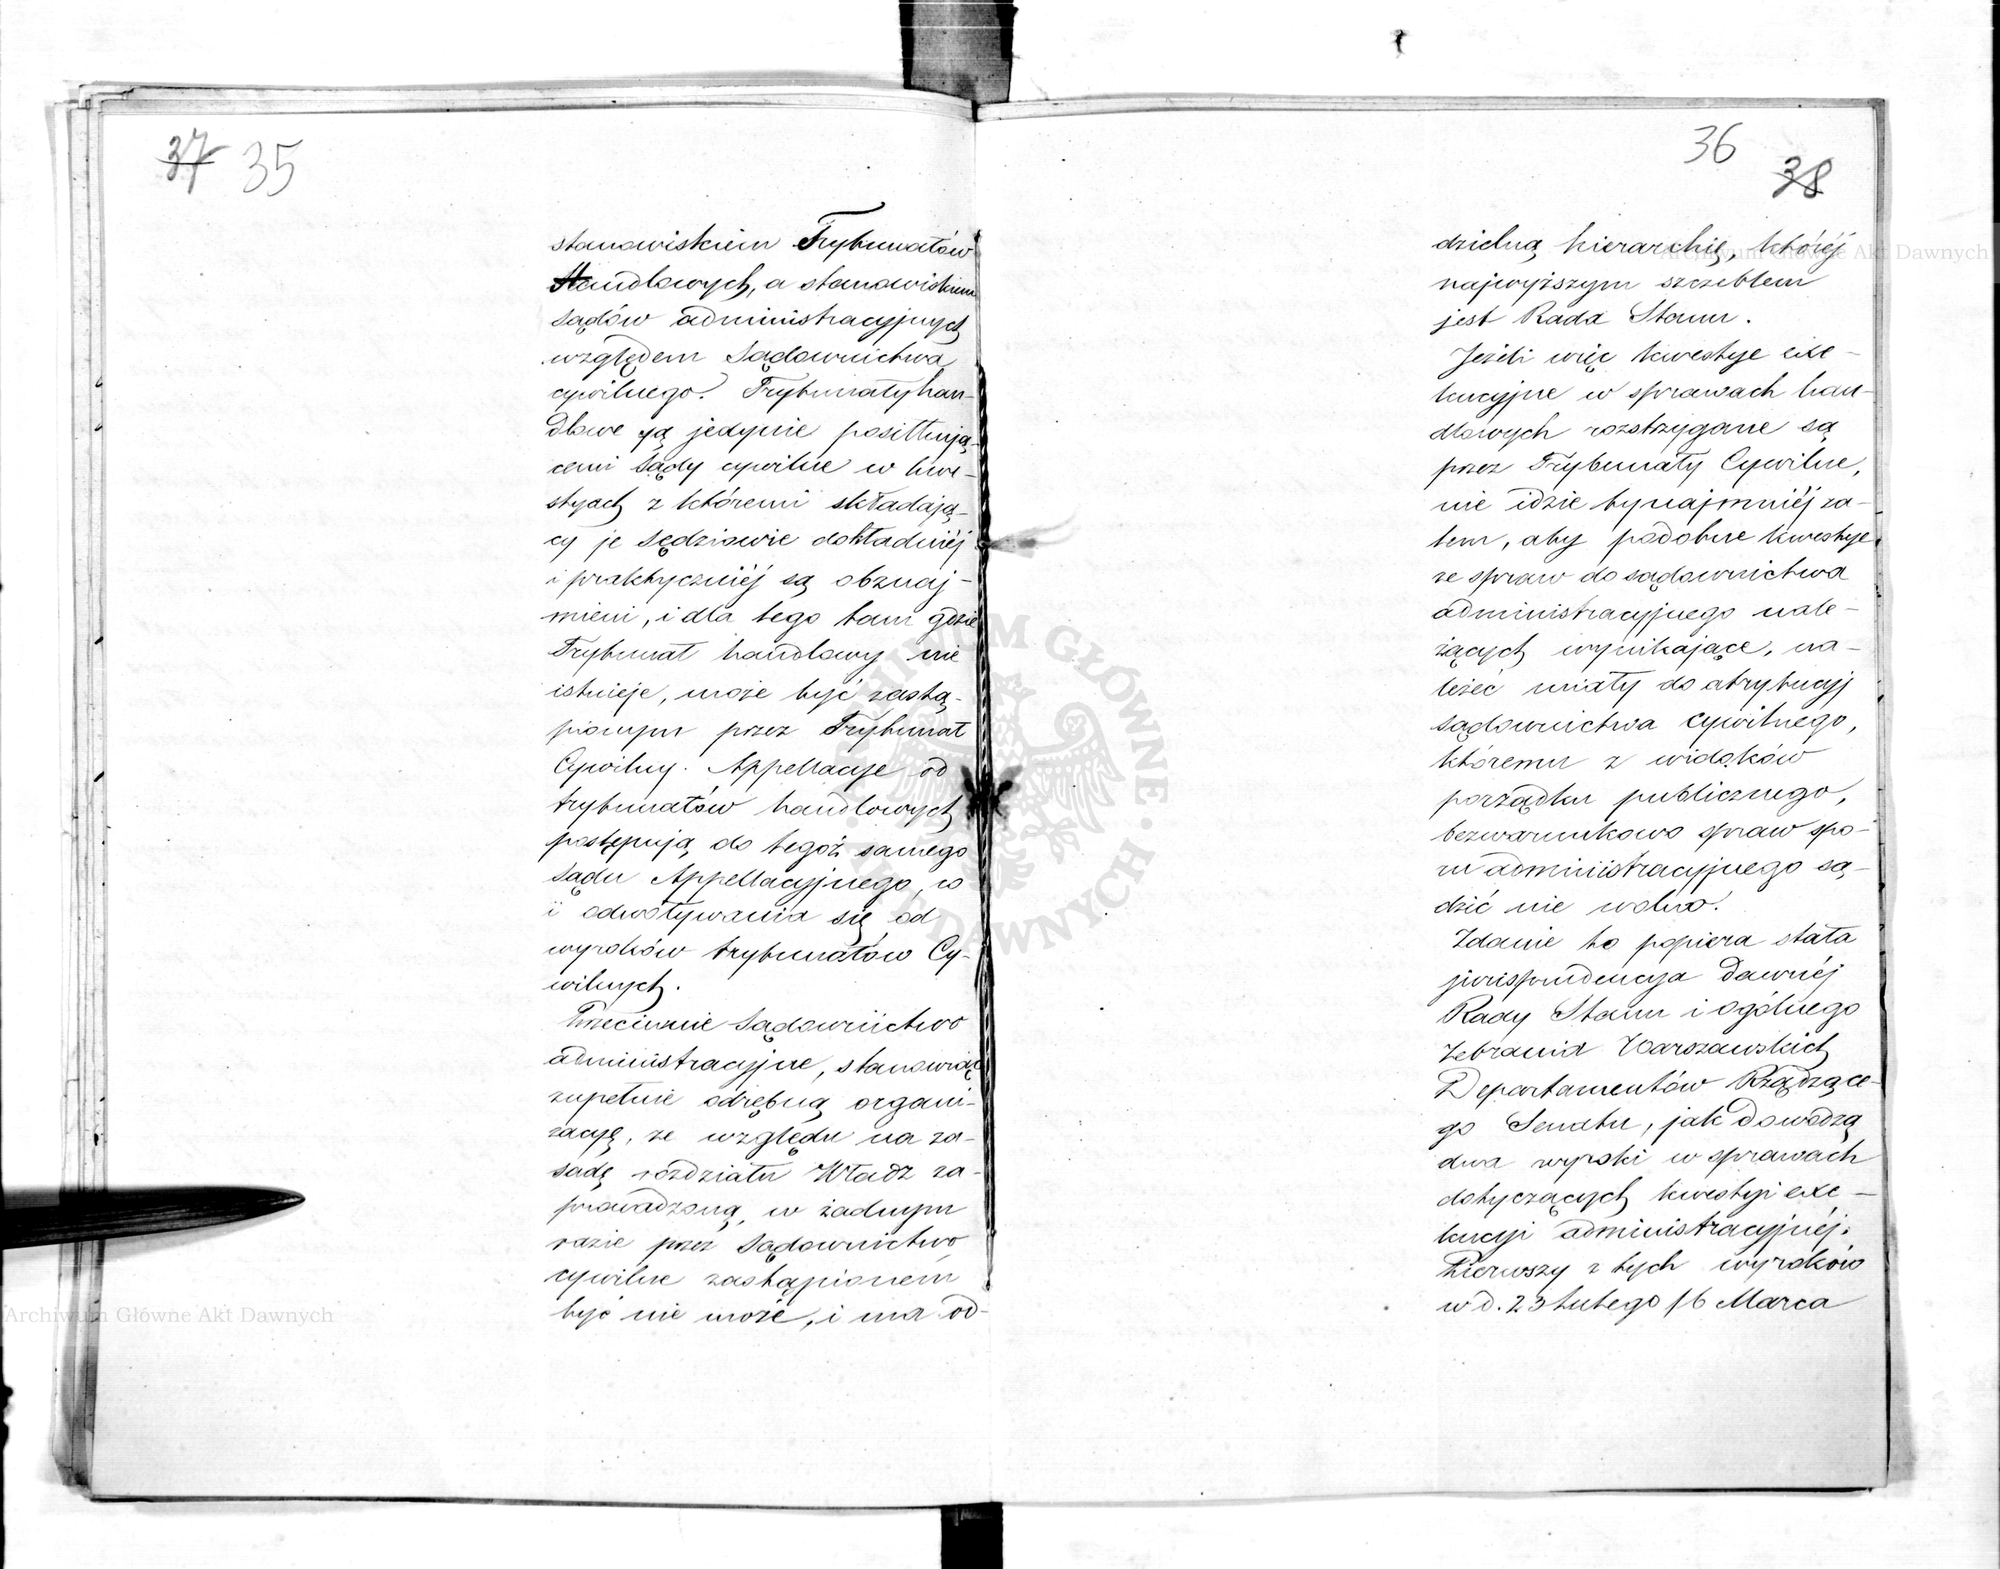 37 35
stanowiskiem Trybunałów
Handlowych, a stanowiskiem
sądów administracyjnych
względem Sądownictwa
cywilnego? Trybunały han-
dlowe są jedynie posiłkują-
cemi Sądy cywilne w kwe-
styach z któremi składają-
cy je Sędziowie dokładniéj
i praktyczniéj są obznaj-
mieni, i dla tego tam gdzie
Trybunał handlowy nie
istnieje, może być zastą-
pionym przez Trybunał
Cywilny. Appellacyje od
trybunałów handlowych
postępują do tegoż samego
Sądu Appellacyjnego, co
i odwoływania się od
wyroków trybunałów Cy-
wilnych.
Przeciwnie Sądownictwo
administracyjne, stanowiąc
zupełnie odrębną organi-
zacyę, ze względu na za-
sadę rozdziału Władz za-
prowadzoną, w żadnym
razie przez Sądownictwo
cywilne zastąpionem
być nie może, i ma od-
36 38
dzielną hierarchię, któréj
najwyższym szczeblem
jest Rada Stanu.
Jeżeli więc kwestye exe-
kucyjne w sprawach han-
dlowych rozstrzygane są
przez Trybunały Cywilne,
nie idzie bynajmniéj za-
tem, aby podobne kwestye
ze spraw do sądownictwa
administracyjnego nale-
żących wynikające, na-
leżeć miały do atrybucyj
sądownictwa cywilnego,
któremu z widoków
porządku publicznego,
bezwarunkowo spraw spo-
ru administracyjnego są-
dzić nie wolno.
Zdanie to popiera stała
jurisprudencya dawnéj
Rady Stanu i ogólnego
Zebrania Warszawskich
Departamentów Rządzące-
go Senatu, jak dowodzą
dwa wyroki w sprawach
dotyczących kwestyi exe-
kucyi administracyjnéj.
Pierwszy z tych wyroków
w d. 23 Lutego /6 Marca
Archiwum Główne Akt Dawnych
Archiwum Główne Akt Dawnych
ARCHIWUM GŁÓWNE AKT DAWNYCH